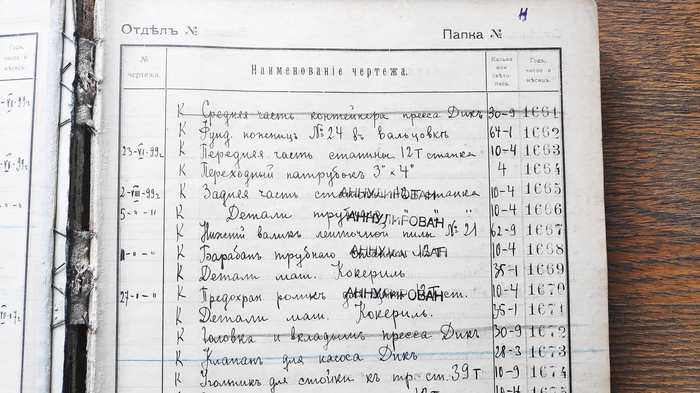 Отдѣлъ № Папка № 4
№ чертежа. Наименованіе чертежа. Калька или свѣто-пись. Годъ, число и мѣсяцъ.
К Средняя часть контейнера пресса Дикъ 30-9 1661
К Фунд. ножницъ № 24 въ вальцовкѣ 64-1 1662
23-VI-99г К Передняя часть станины 12т станка 10-4 1663
К Переходный патрубокъ 3" × 4" 4 1664
2-VIII-99г К Задняя часть АННУЛИРОВАН станка 10-4 1665
5-"-" К Детали АННУЛИРОВАН 10-4 1666
К Нижній валикъ ленточной пилы № 21 62-9 1667
11-"-" К Барабанъ трубнаго станка 12т 10-4 1668
К Детали маш. Кокериль 35-1 1669
27-"-" К Предохран. роликъ АННУЛИРОВАН ст. 10-4 1670
К Детали маш. Кокериль. 35-1 1671
К Головка и вкладышъ пресса Дикъ 30-9 1672
К Клапанъ для насоса Дикъ 28-3 1673
К Угольникъ для стойки къ тр. ст. 39т 10-9 1674